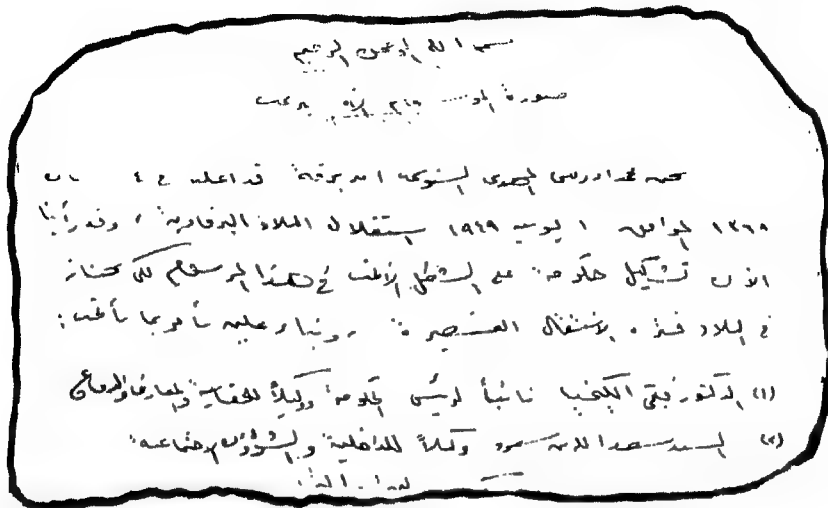 بسم الله الرحمن الرحيم
صورة
نحن محمد ادريس المهدي السنوسي امير برقة قد اعلنا في ٤
١٣٦٨ الموافق ١ يونيه ١٩٤٩ استقلال البلاد البرقاوية ، وقد رأينا
الآن تشكيل حكومة على الشكل الآتي في هذا المرسوم لكي تجتاز
في البلاد فترة الانتقال القصيرة ، وبناء عليه نأمر بما يأتي :
(١) الدكتور فتحي الكيخيا نائباً لرئيس الحكومة ووكيلاً للحقانية والمعارف والدفاع
(٢) السيد سعد الله بن سعود وكيلاً للداخلية والشؤون الاجتماعية